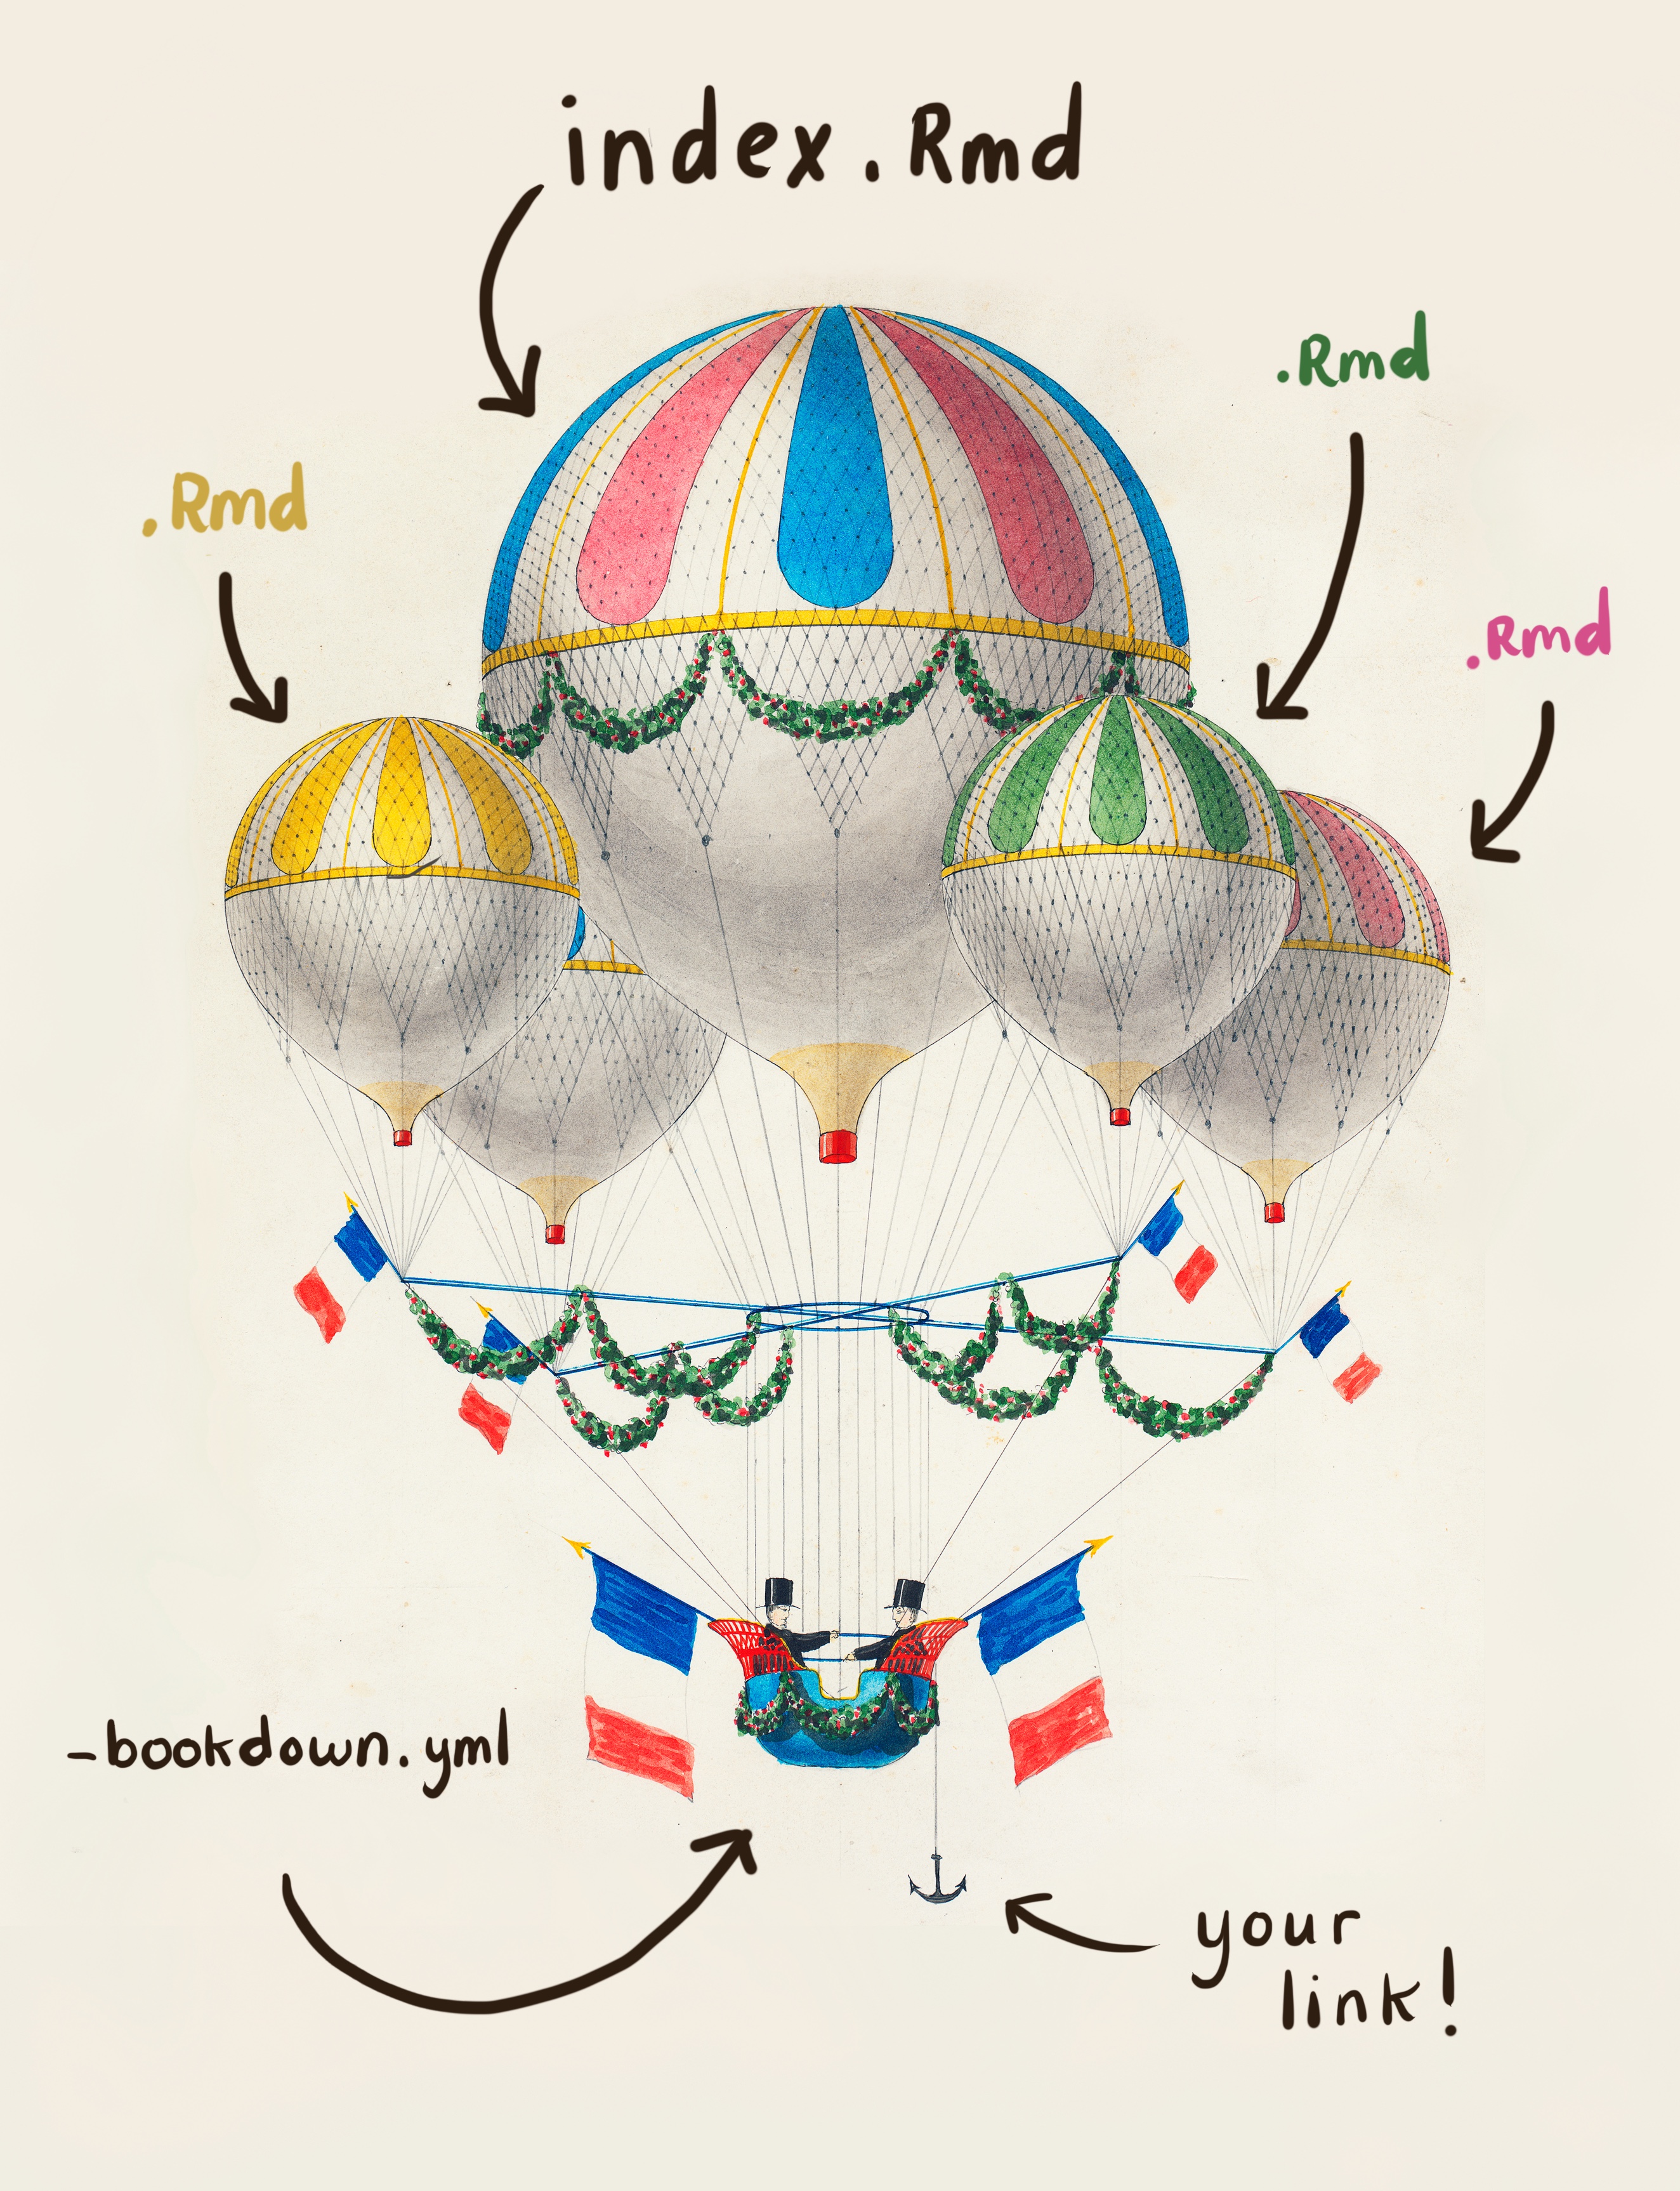 index.Rmd
.Rmd
.Rmd
.Rmd
-bookdown.yml
your
link!